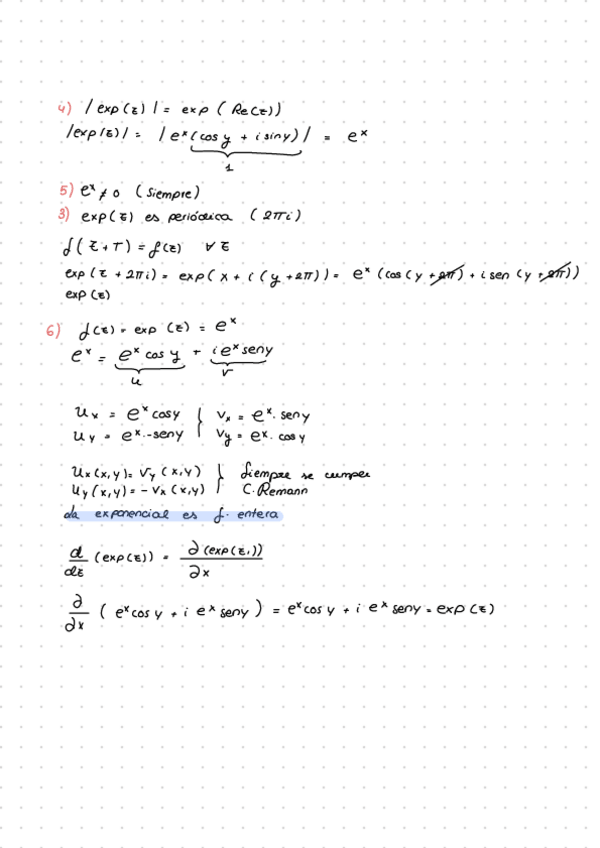 4) |exp(z)| = exp(Re(z))
|exp(z)| = |e^x(cos y + i sin y)| = e^x
1
5) e^x ≠ 0 (Siempre)
3) exp(z) es periódica (2πi)
f(z+T) = f(z) ∀ z
exp(z + 2πi) = exp(x + i(y+2π)) = e^x (cos(y+2π) + i sen(y+2π))
exp(z)
6) f(z) = exp(z) = e^x
e^x = e^x cos y + i e^x sen y
u v
u_x = e^x cos y } v_x = e^x · sen y
u_y = e^x · -sen y } v_y = e^x · cos y
u_x(x,y) = v_y(x,y) } Siempre se cumpen
u_y(x,y) = -v_x(x,y) } C. Remann
La exponencial es f. entera
d/dz (exp(z)) = ∂(exp(z,))/∂x
∂/∂x (e^x cos y + i e^x sen y) = e^x cos y + i e^x sen y = exp(z)